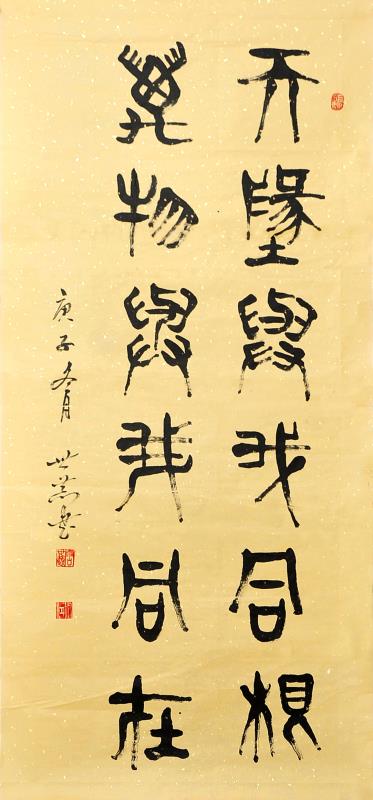 天地與我同根
萬物與我同在
庚子冬月 世書